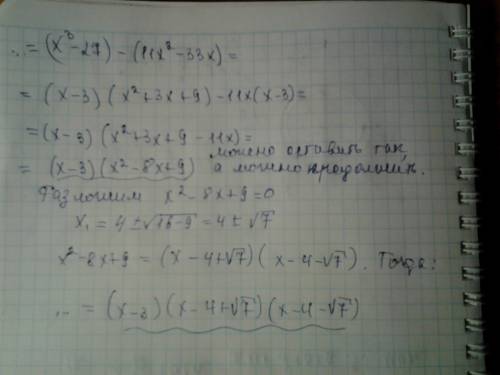 ...= (x³-27) - (11x²-33x)=
= (x-3) (x²+3x+9) -11x(x-3)=
=(x-3) (x²+3x+9 -11x)=
можно оставить так,
= (x-3)(x²-8x+9) а можно продолжить.
Разложим x²-8x+9=0
x₁ = 4 ±√16-9 = 4 ± √7
x²-8x+9 = (x-4+√7)(x-4-√7). Тогда:
... = (x-3)(x-4+√7)(x-4-√7)